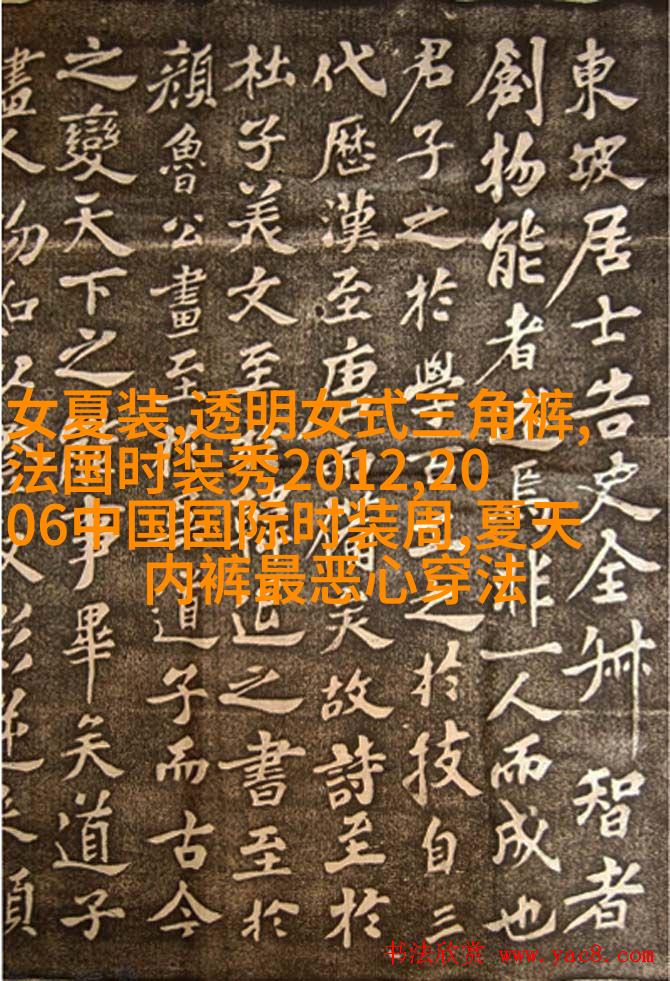 東坡居士告史全叔智者
創物能者述焉非一人而成也
君子之於學百工之於技自三
代歷漢至唐而備矣故詩至於
杜子美文至於韓退之書至於
顏魯公畫至於吳道子而古今
之變天下之能事畢矣道子
女夏装,透明女式三角裤,
法国时装秀2012,20
06中国国际时装周,夏天
内裤最恶心穿法
书法欣赏 www.yac8.com